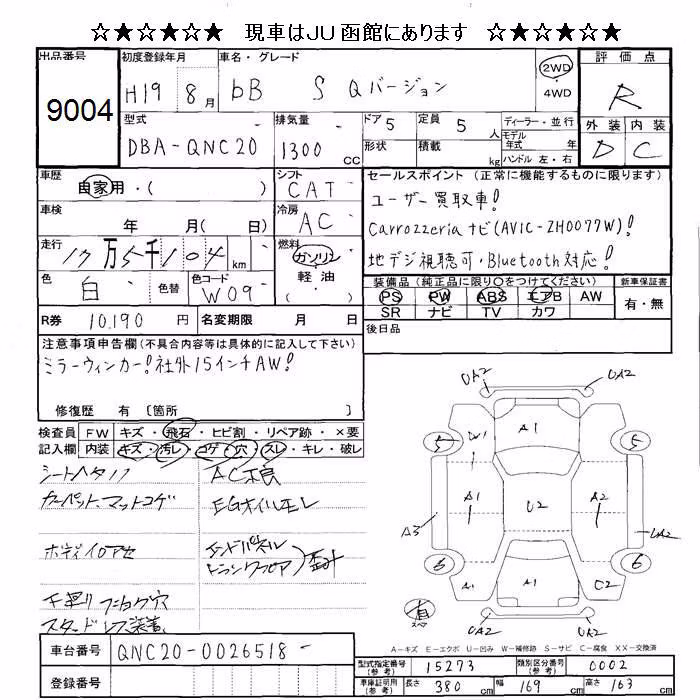 ☆★☆★☆★ 現車はJU函館にあります ☆★☆★☆★
出品番号 初度登録年月 車名・グレード 評価点
9004 H19 8月 bB S Qバージョン 2WD ・ 4WD R
型式 排気量 ドア 5 定員 5 人 ディーラー・並行 外装 内装
DBA-QNC20 1300 CC 形状 積載 kg モデル年式 年 ハンドル 左・右 D C
車歴 自家用・( ) シフト CAT セールスポイント (正常に機能するものに限ります)
車検 年 月( 日) 冷房 AC ユーザー買取車!
Carrozzeria ナビ(AVIC-ZH0077W)!
走行 17万5千104 km 燃料 ガソリン・軽油 ( ) 地デジ視聴可・Bluetooth対応!
色 白 色替 色コード W09 装備品 (純正品に限り〇をつけてください) 新車保証書
PS PW ABS エアB AW 有・無
SR ナビ TV カワ
R券 10,190 円 名変期限 月 日 後日品
注意事項申告欄(不具合内容等は具体的に記入して下さい)
ミラーウィンカー!社外15インチAW!
修復歴 有 〔箇所 〕
検査員 FW キズ・飛石・ヒビ割・リペア跡・×要
記入欄 内装 キズ・汚レ・コゲ・穴・スレ・キレ・破レ
シートヘタリ AC不良
カーペット、マットコゲ EGオイルモレ
ボディイロアセ エンドパネル
トランクフロア)歪み
下廻り
スタッドレス装着
UA2 UA2
A1
5 5
A1 U2 A2
A3 UA2
6 6
A1 A1 C2
有 スペア UA2 UA2
A-キズ E-エクボ U-凹み W-補修跡 S-サビ C-腐食 XX-交換済
車台番号 QNC20-0026518
登録番号
型式指定番号(参考) 15273 類別区分番号(参考) 0002
車庫証明用(参考) 長さ 380 cm 幅 169 cm 高さ 163 cm